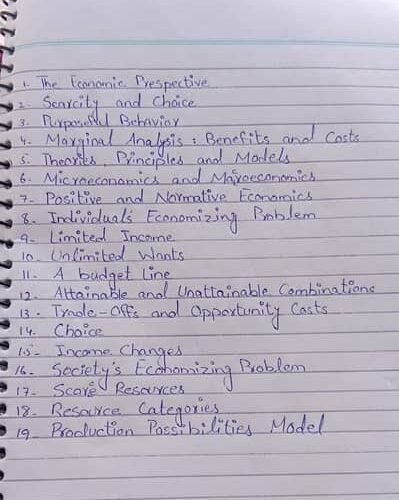 1. The Economic Prespective
2. Scarcity and Choice
3. Purposeful Behavior
4. Marginal Analysis : Benefits and Costs
5. Theories, Principles and Models
6. Microeconomics and Macroeconomics
7- Positive and Normative Economics
8. Individuals Economizing Problem
9- Limited Income
10. Unlimited Wants
11- A budget Line
12. Attainable and Unattainable Combinations
13 - Trade-Offs and Opportunity Costs
14. Choice
15- Income Changes
16- Society's Economizing Problem
17- Scare Resources
18- Resource Categories
19- Production Possibilities Model